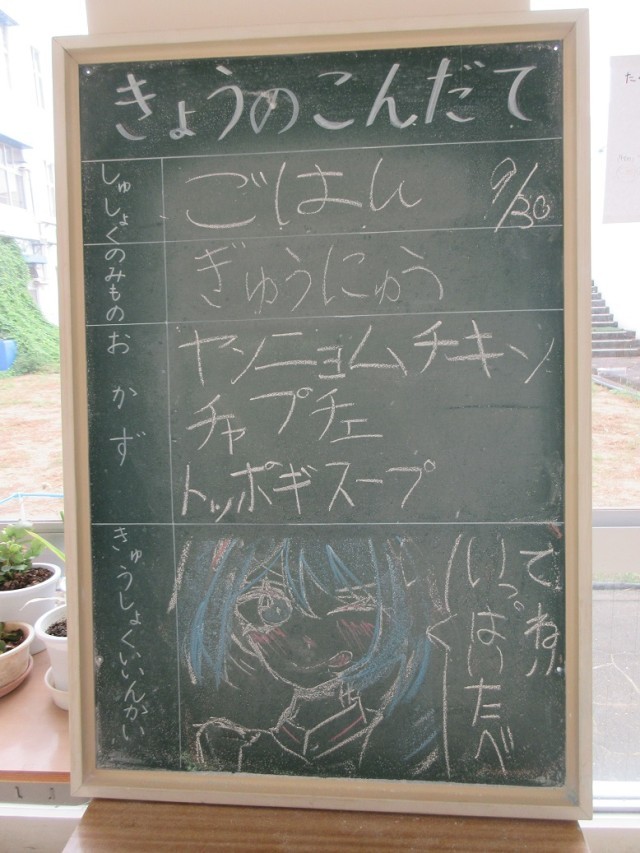 きょうのこんだて
しゅしょく
ごはん
9/30
のみもの
ぎゅうにゅう
おかず
ヤンニョムチキン
チャプチェ
トッポギスープ
きゅうしょくいいんかい
いっぱいたべ
てね!!